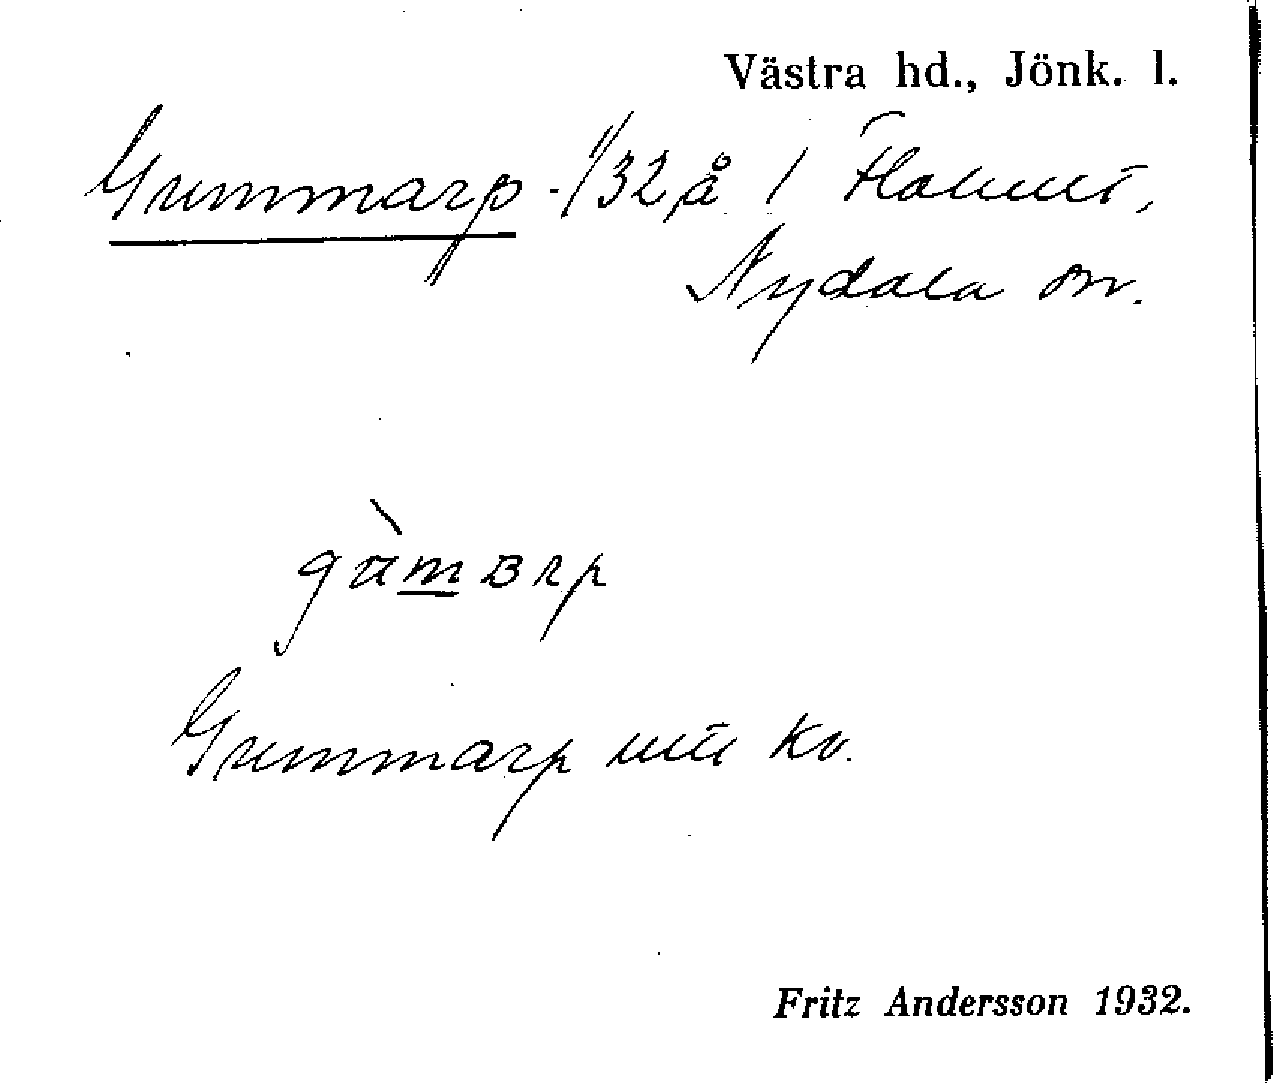 Västra hd., Jönk. l.
Gummarp 1/32 å /
Nydala sn.
gàmarp
Gummarp kv.
Fritz Andersson 1932.